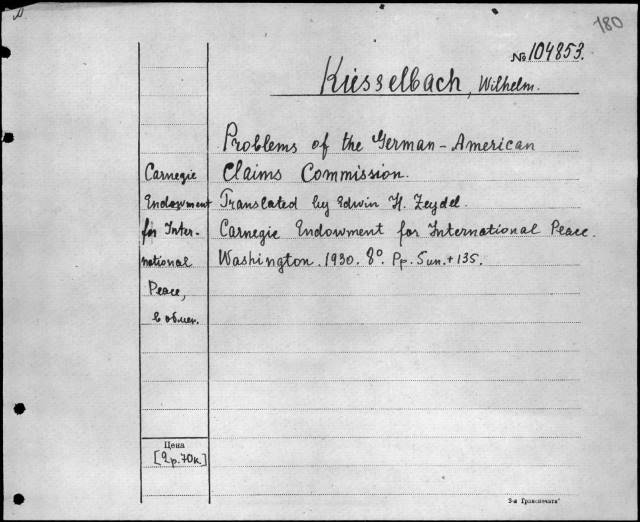 180
№ 104853.
Kiesselbach, Wilhelm.
Problems of the German-American
Claims Commission.
Translated by Edwin H. Zeydel.
Carnegie Endowment for International Peace.
Washington. 1930. 8°. Pp. 5 un. + 135.
Carnegie
Endowment
for Inter-
national
Peace,
в обмен.
Цена
[2 р. 70 к]
3-я Гранпечати"